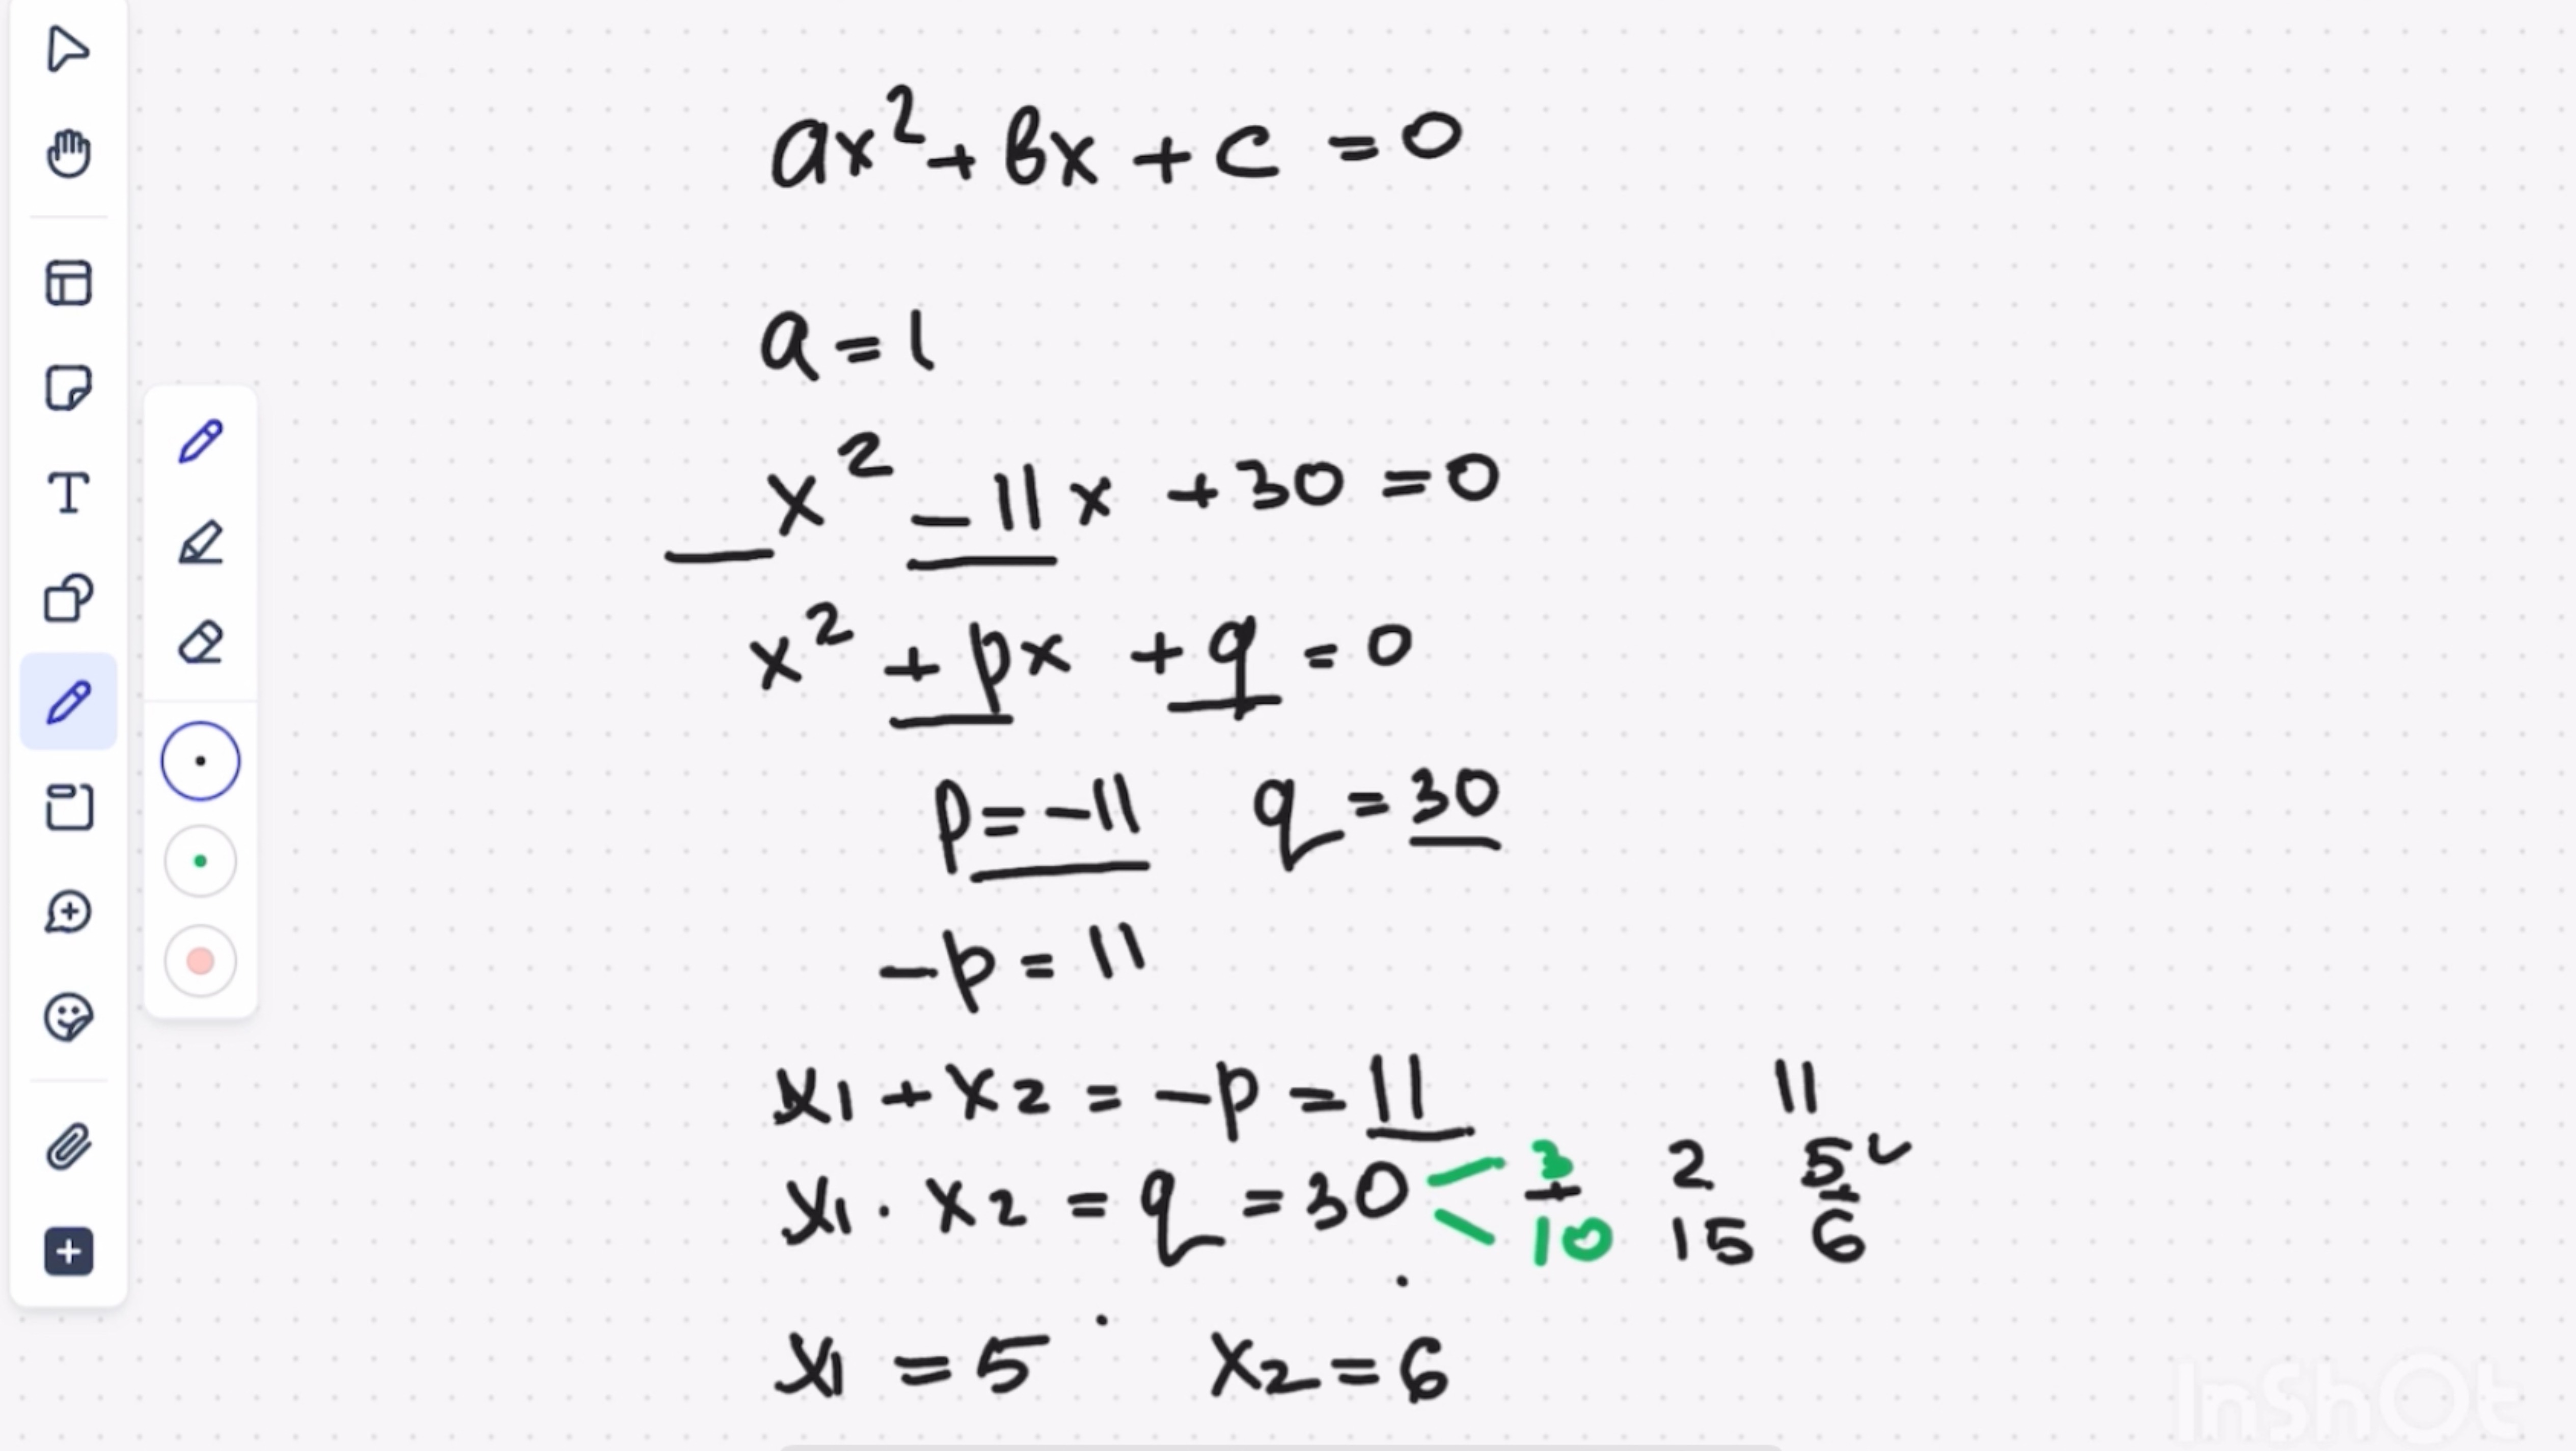 ax² + bx + c = 0
a = 1
x² - 11x + 30 = 0
x² + px + q = 0
p = -11 q = 30
-p = 11
x₁ + x₂ = -p = 11
x₁ · x₂ = q = 30 < 3 + 10
2 15
11
5 + 6
x₁ = 5 x₂ = 6
T
InShOt